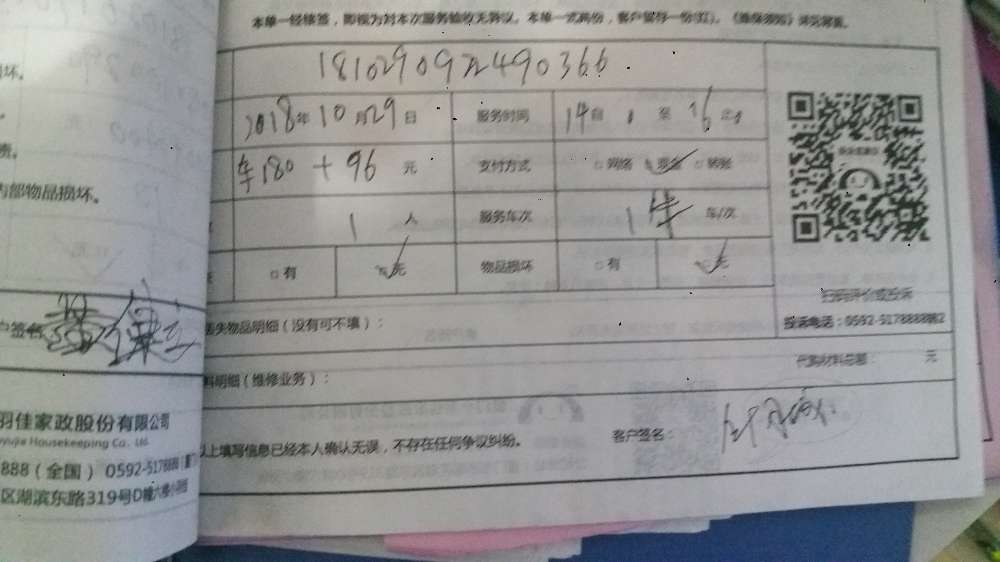 本单一经缮签，即视为对本次服务验收无异议。本单一式两份，客户留存一份(红)。
坏.
181029092490366
2018年10月29日 服务时间 14 至 16
车180 + 96 元 支付方式 □网络 现金 □转账
内部物品损坏.
1 人 服务车次 1 车/次
□有 无 物品损坏 □有 无
扫码评价或投诉
失物品明细（没有可不填）： 投诉电话：0592-5178888
代购材料总额： 元
料明细（维修业务）：
羽佳家政股份有限公司
yujia Housekeeping Co., Ltd.
以上填写信息已经本人确认无误，不存在任何争议纠纷。 客户签名：
888（全国） 0592-5178888
区湖滨东路319号D幢六楼